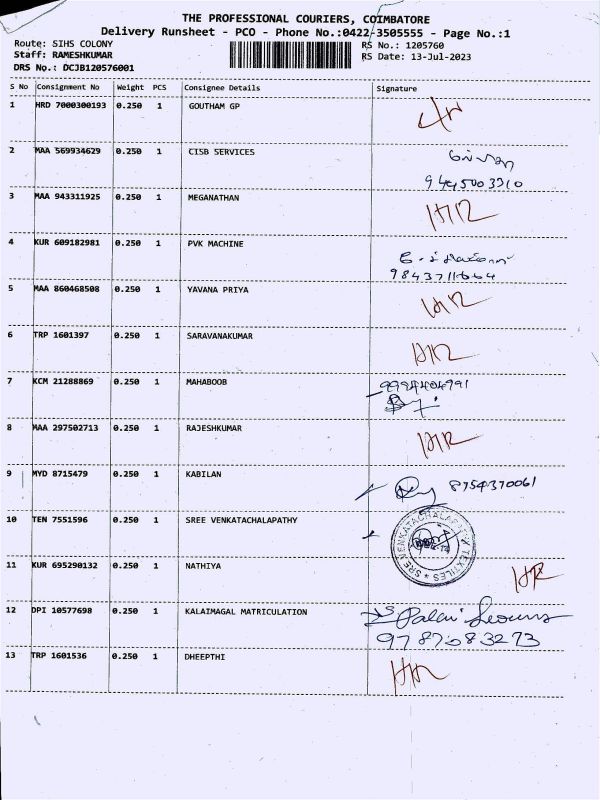 THE PROFESSIONAL COURIERS, COIMBATORE
Delivery Runsheet - PCO - Phone No.:0422-3505555 - Page No.:1
Route: SIHS COLONY
RS No.: 1205760
Staff: RAMESHKUMAR
RS Date: 13-Jul-2023
DRS No.: DCJB120576001
S No Consignment No Weight PCS Consignee Details Signature
1 HRD 7000300193 0.250 1 GOUTHAM GP
2 MAA 569934629 0.250 1 CISB SERVICES
9445003910
3 MAA 943311925 0.250 1 MEGANATHAN
4 KUR 609182981 0.250 1 PVK MACHINE
9843711664
5 MAA 860468508 0.250 1 YAVANA PRIYA
6 TRP 1601397 0.250 1 SARAVANAKUMAR
7 KCM 21288869 0.250 1 MAHABOOB
9994404791
8 MAA 297502713 0.250 1 RAJESHKUMAR
9 MYD 8715479 0.250 1 KABILAN
8754370061
10 TEN 7551596 0.250 1 SREE VENKATACHALAPATHY
SREE VENKATACHALAPATHY TEXTILES
11 KUR 695290132 0.250 1 NATHIYA
12 DPI 10577698 0.250 1 KALAIMAGAL MATRICULATION
9787083273
13 TRP 1601536 0.250 1 DHEEPTHI